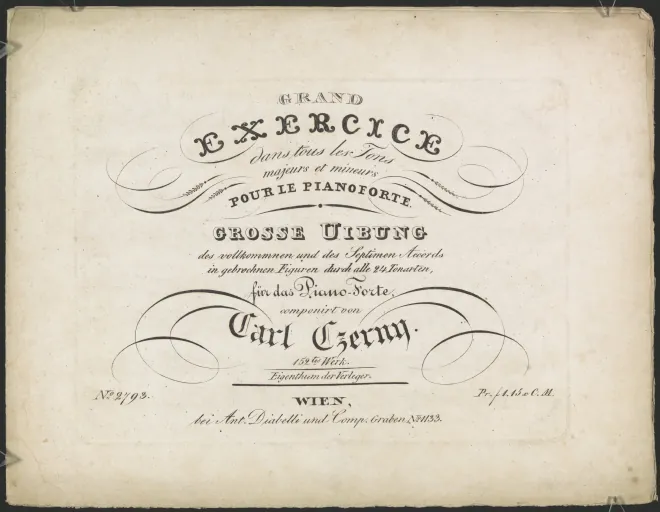 GRAND
EXERCICE
dans tous les Tons
majeurs et mineurs
POUR LE PIANOFORTE.
GROSSE UIBUNG
des vollkommnen und des Septimen Accords
in gebrochnen Figuren durch alle 24 Tonarten,
für das Piano-Forte,
componirt von
Carl Czerny.
152tes Werk.
Eigenthum der Verleger.
No 2793.
Pr. f 1.15 x C.M.
WIEN,
bei Ant. Diabelli und Comp. Graben No 1133.